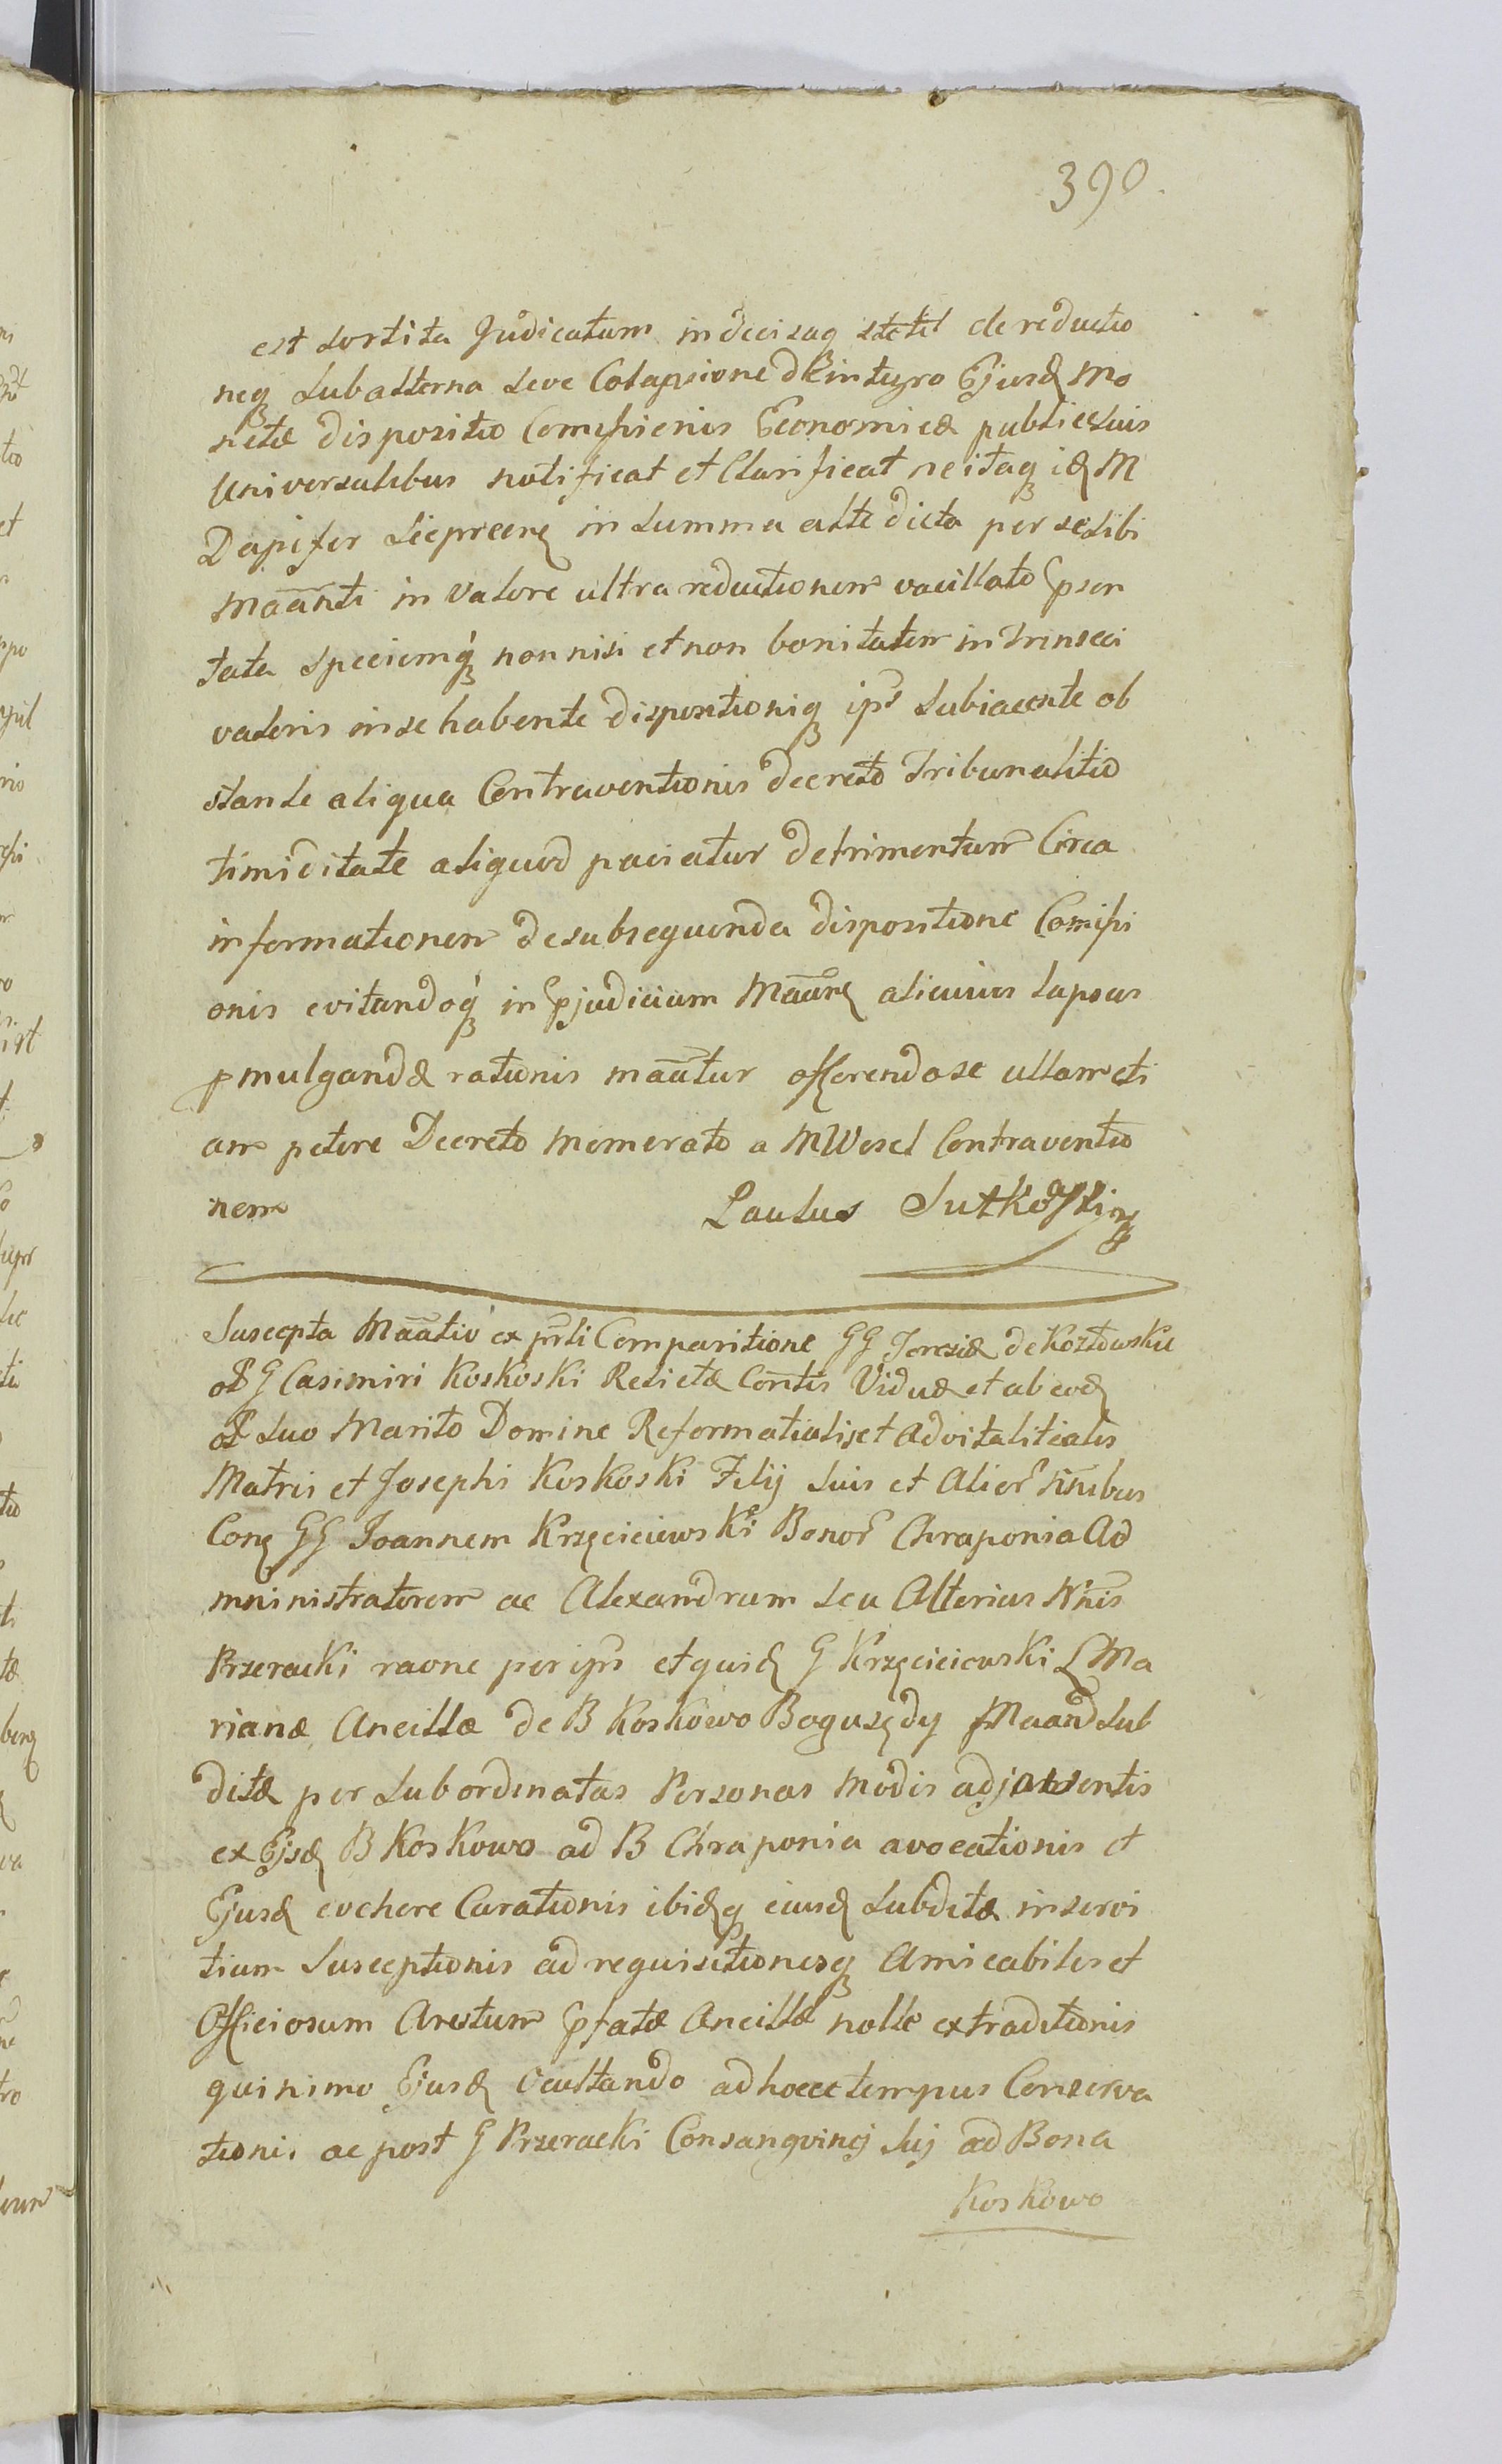 390.
est sortita Judicatum indecisaq stetit de reductio
neq subalterna seve Colapsione de integro Ejusd Mo
netæ dispositio Comissionis Œconomicæ publice suis
Universalibus notificat et Clarificat ne itaq id M
Dapifer Sieprcen in summa alte dicta per se sibi
Maanti in valore ultra reductionem vacillato pson
tata speciemq non nisi et non bonitatem intrinseci
valoris in se habente dispositioniq ips subiacente ob
stante aliqua Contraventionis decreto Tribunalitio
timiditate aliquod paciatur detrimentum Circa
informationem de subsequenda dispositione Comissi
onis evitandoq in pjudicium Maan alicuius lapsus
pmulgandæ rationis maatur offerendo se ullam eti
am petere Decreto memorato a M Wesel Contraventio
nem
Paulus Sutkoski
Suscepta Maatio ex pnti Comparitione GG Teresiæ de Kozłowskie
ol G Casimiri Koskoski Relictæ Contis Viduæ et ab eod
ol suo Marito Domine Reformatialis et Advitalitialis
Matris et Josephi Koskoski Filij suis et Alior nnibus
Con GG Joannem Krzęciciewski Bonor Chraponia Ad
mninistratorem ac Alexandrum seu Alterius Nnis
Przeracki raone per ips et quid G Krzęciciewski L Ma
rianæ Ancillæ de B Koskowo Boguszdy Maand sub
ditæ per subordinatas Personas modis adjacentis
ex Ejsd B Koskowo ad B Chraponia avocationis et
Ejusd evehere Curationis ibidq eiusd subditæ in servi
tium susceptionis ad requisitionesq Amicabiles et
Officiosum Arestum pfatæ Ancillæ nolle extraditionis
quinimo Ejusd ocultando ad hocce tempus Conserva
tionis ac post G Przeracki Consangvinej sij ad Bona
Koskowo